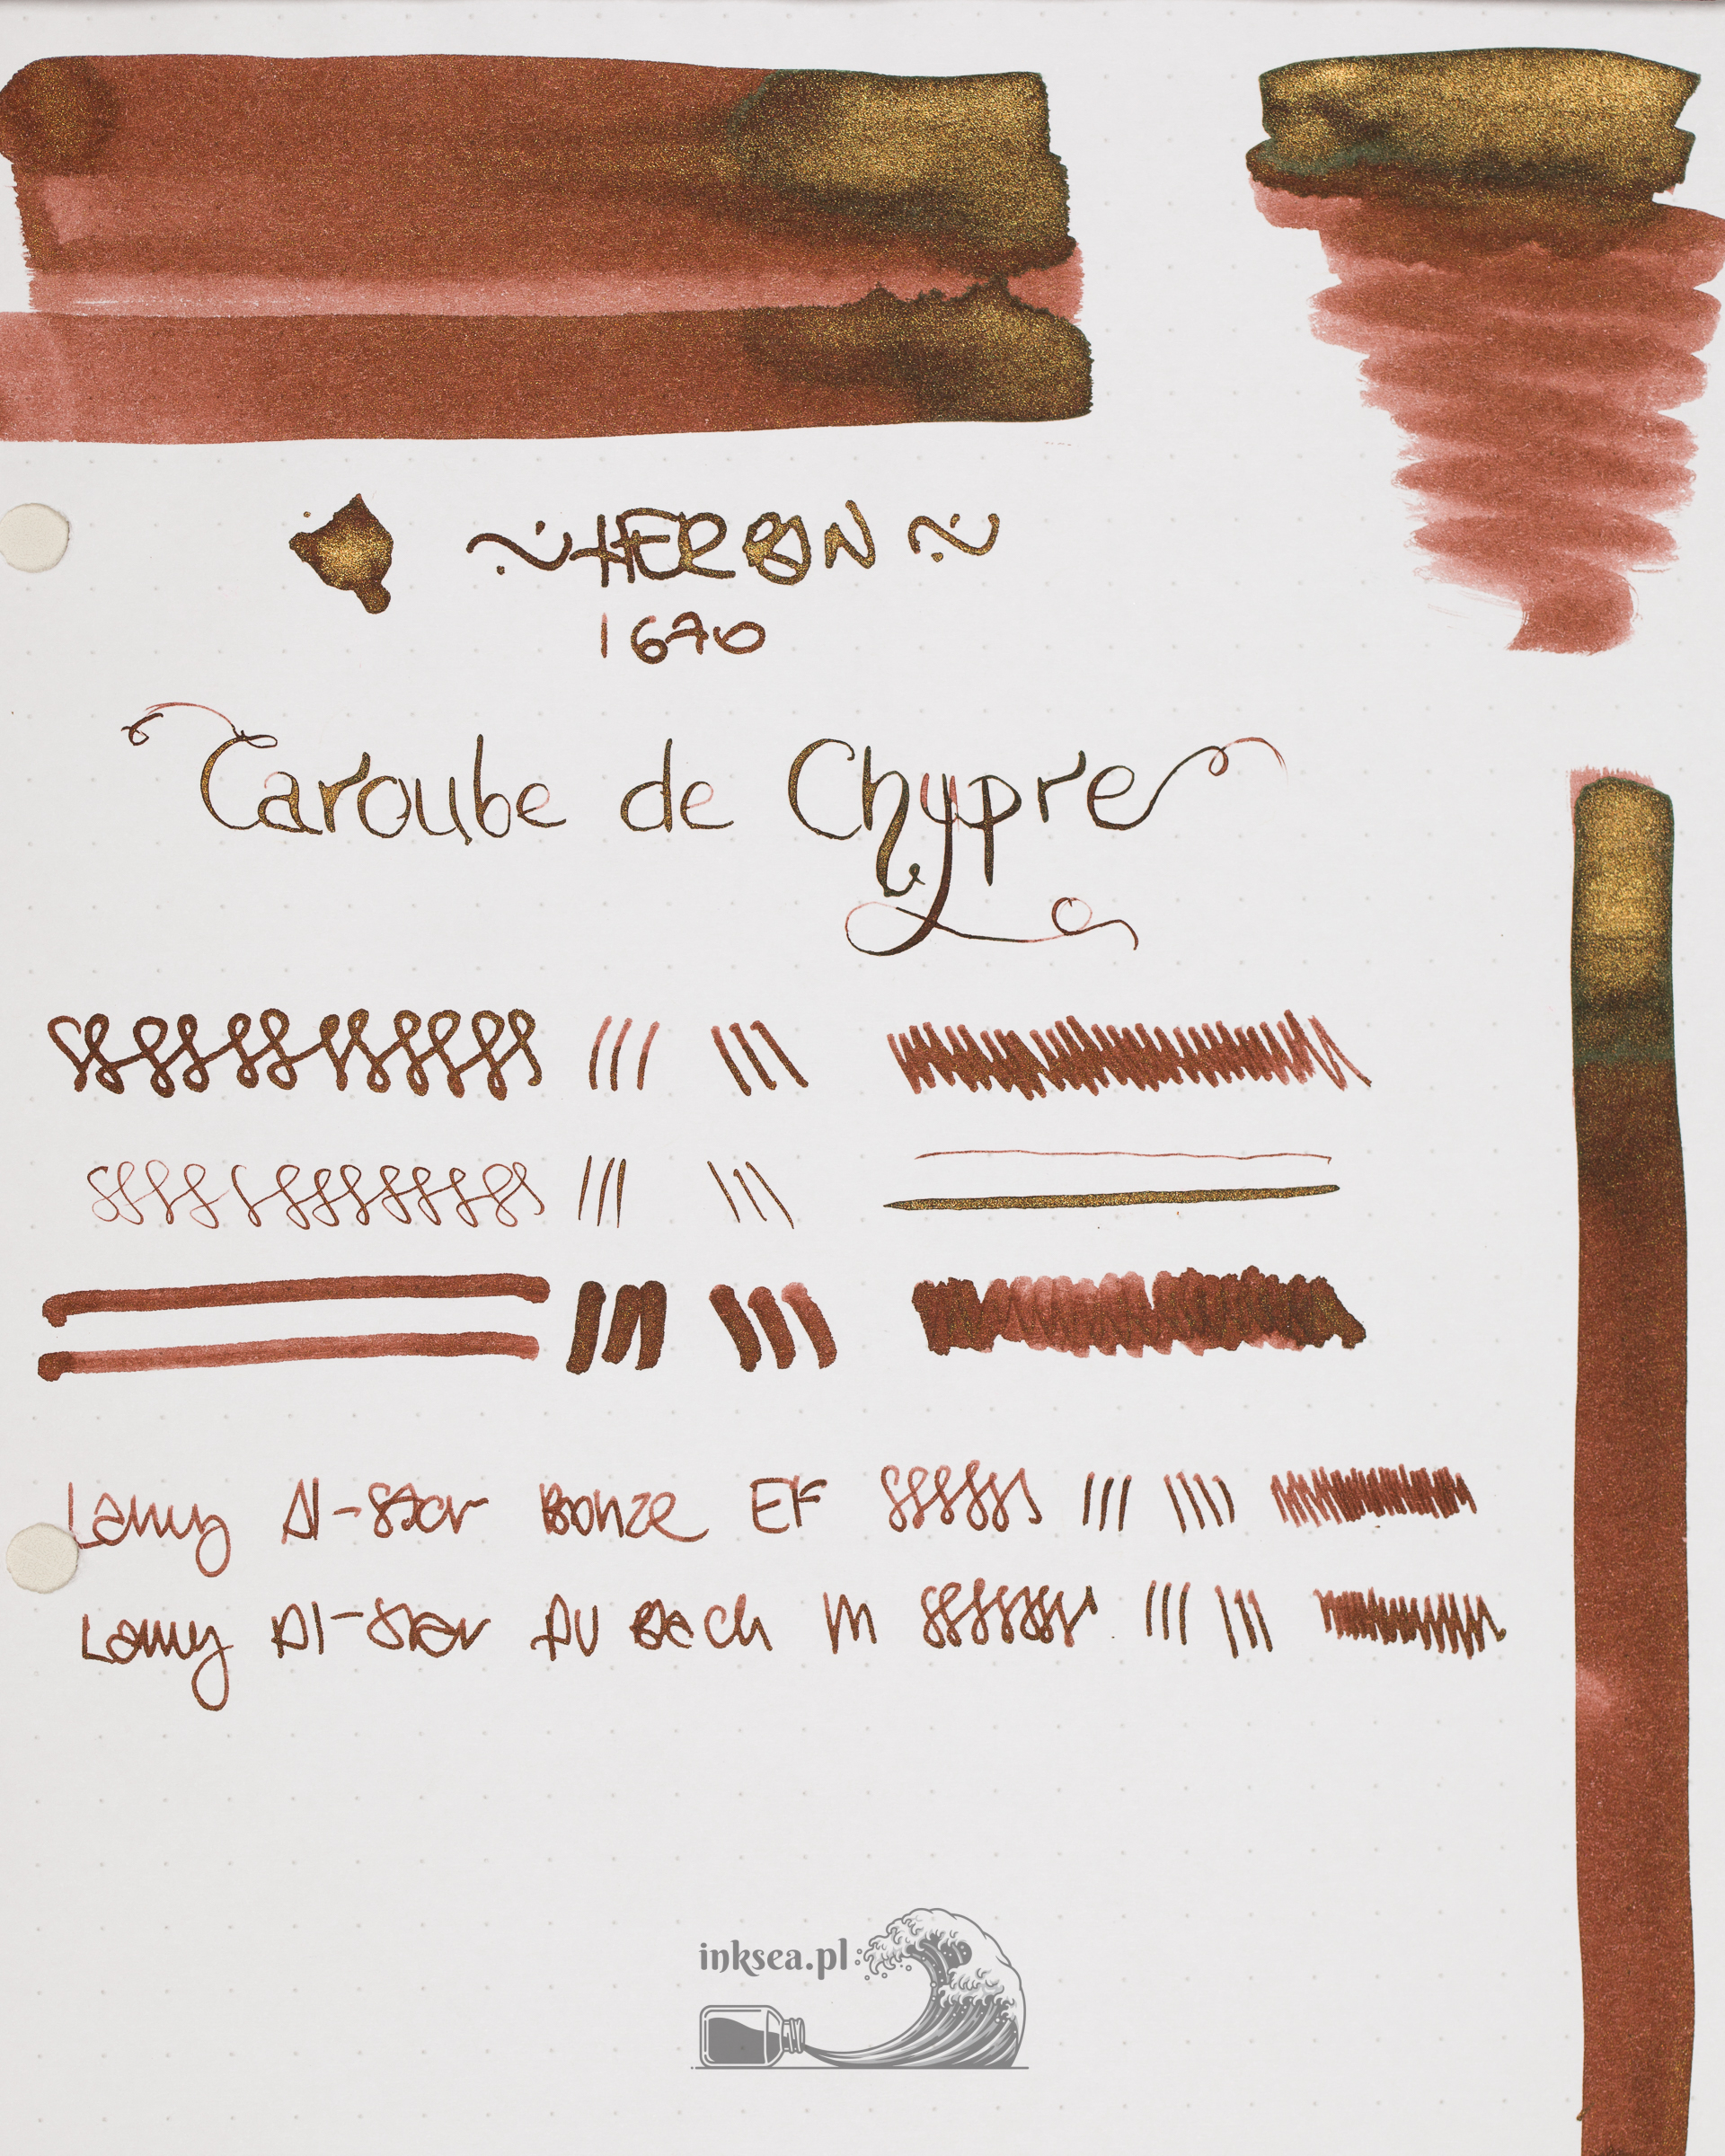 ~HERBIN~
1670
Caroube de Chypre
Lamy Al-Star Bronze EF
Lamy Al-Star M
inksea.pl